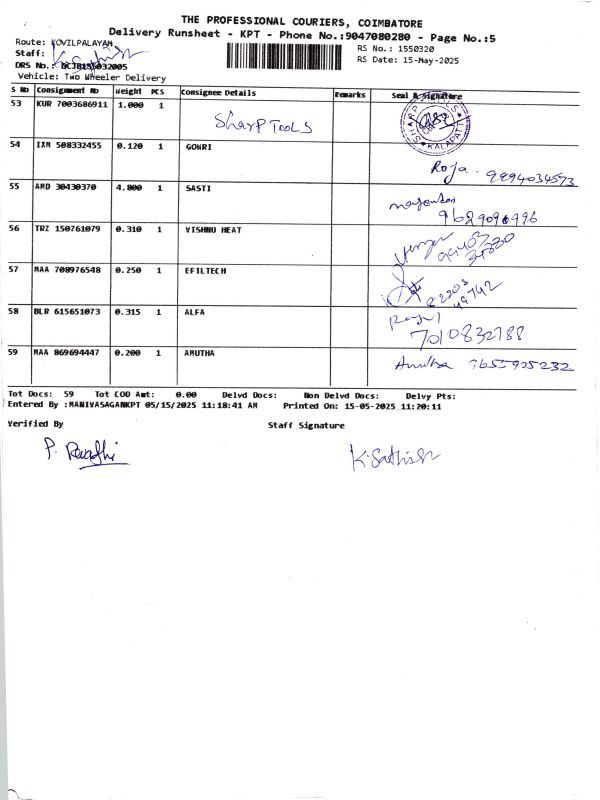 THE PROFESSIONAL COURIERS, COIMBATORE
Delivery Runsheet - KPT - Phone No.:9047080280 - Page No.:5
Route: KOVILPALAYAM
Staff:
RS No.: 1550320
DRS No.:
RS Date: 15-May-2025
Vehicle: Two Wheeler Delivery
S No Consignment No Weight PCS Consignee Details Remarks Seal & Signature
53 KUR 7003686911 1.000 1 Sharp Tools
54 IXM 508332455 0.120 1 GOWRI
Roja. 9894034573
55 AMD 30430370 4.800 1 SASTI
9629090996
56 TRZ 150761079 0.310 1 VISHNU HEAT
57 MAA 708976548 0.250 1 EFILTECH
58 BLR 615651073 0.315 1 ALFA
7010832788
59 MAA 869694447 0.200 1 AMUTHA
Amutha 9655905232
Tot Docs: 59 Tot COD Amt: 0.00 Delvd Docs: Non Delvd Docs: Delvy Pts:
Entered By :MANIVASAGANKPT 05/15/2025 11:18:41 AM Printed On: 15-05-2025 11:20:11
Verified By Staff Signature
K. Sathish